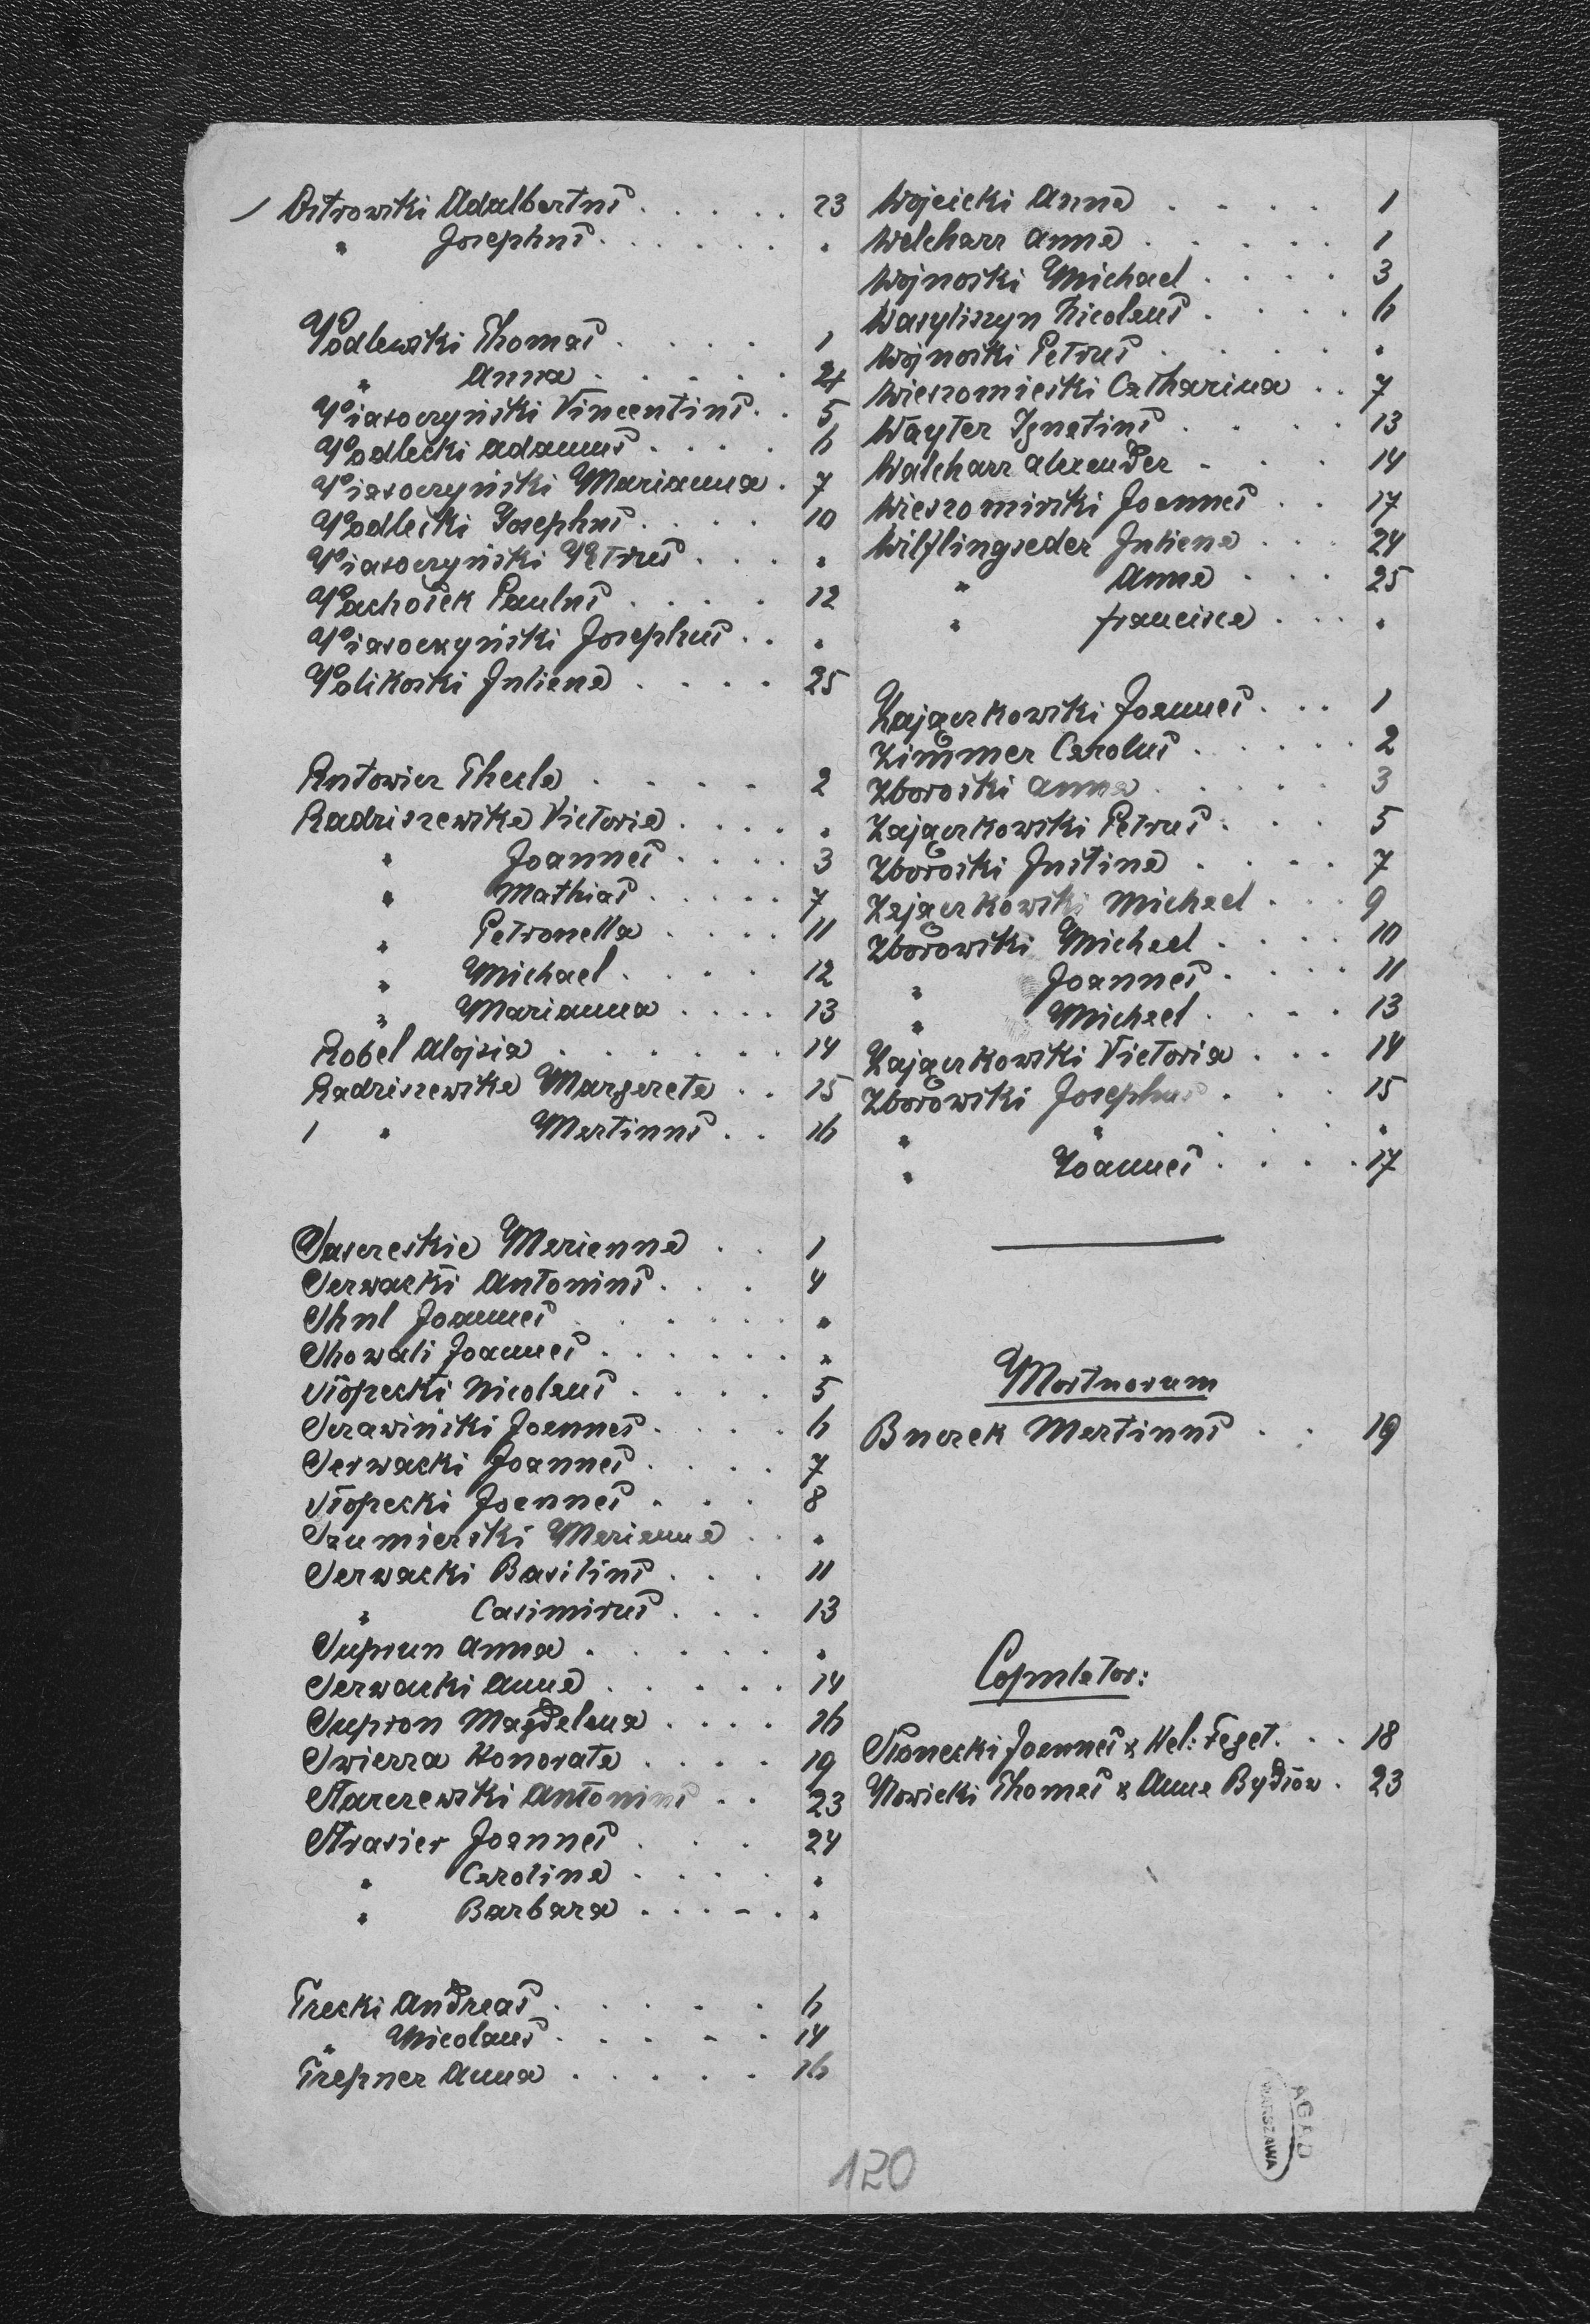 Ostrowski Adalbertus . . . . . 23
" Josephus . . . . . . "
Podlewski Thomas . . . . . 1
" Anna . . . . . . 24
Piasoczyński Vincentius . . 5
Podlecki Adamus . . . . 6
Piasoczyński Marianna . 7
Podleski Josephus . . . . 10
Piasoczyński Petrus . . . . "
Pachołek Paulus . . . . . 12
Piasoczyński Josephus . . "
Polikoski Juliana . . . . 25
Rutowicz Thecla . . . . . 2
Radziszewska Victoria . . . . "
" Joannes . . . . 3
" Mathias . . . . . 7
" Petronella . . . . 11
" Michael . . . . 12
" Marianna . . . . 13
Robel Alojsia . . . . . . . 14
Radziszewska Margareta . . 15
" Martinus . . 16
Marianna . . 1
Serwacki Antonius . . . 4
Joannes . . . . . . "
Joannes . . . . . . "
Słopecki Nicolaus . . . . 5
Serawiński Joannes . . . . 6
Serwacki Joannes . . . . 7
Słopecki Joannes . . . 8
Marianna . . "
Serwacki Basilius . . . 11
" Casimirus . . . 13
Suprun Anna . . . . . "
Serwacki Anna . . . . . 14
Supron Magdalena . . . . 16
Swierza Honorata . . . . 19
Starczewski Antonius . . 23
Strasier Joannes . . . 24
" Carolina . . . . "
" Barbara . . . . . "
Trecki Andreas . . . . . 6
" Nicolaus . . . . . 14
Trepner Anna . . . . . 16
Wojcicki Anna . . . . 1
Welcharz Anna . . . . . 1
Wojnoski Michael . . . . 3
Wasyliszyn Nicolaus . . . . 6
Wojnoski Petrus . . . . . "
Catharina . . 7
Wayter Ignatius . . . . 13
Walcharz Alexander . . . 14
Joannes . . 17
Wilflingseder Juliana . . . 24
" Anna . . . 25
" Francisca . . . "
Zajączkowski Joannes . . . 1
Zimmer Carolus . . . . . . 2
Zboroski Anna . . . . . 3
Zajączkowski Petrus . . . 5
Zboroski Justina . . . . 7
Zajączkowski Michael . . . 9
Zborowski Michael . . . . 10
" Joannes . . . . 11
" Michael . . . . 13
Zajączkowski Victoria . . . 14
Zborowski Josephus . . . 15
" " . . . . "
" Joannes . . . . 17
Mortuorum
Burek Martinus . . 19
Copulator:
Słonecki Joannes & Hel: Feget. . . 18
Nowicki Thomas & Anna . 23
120
AGAD
WARSZAWA